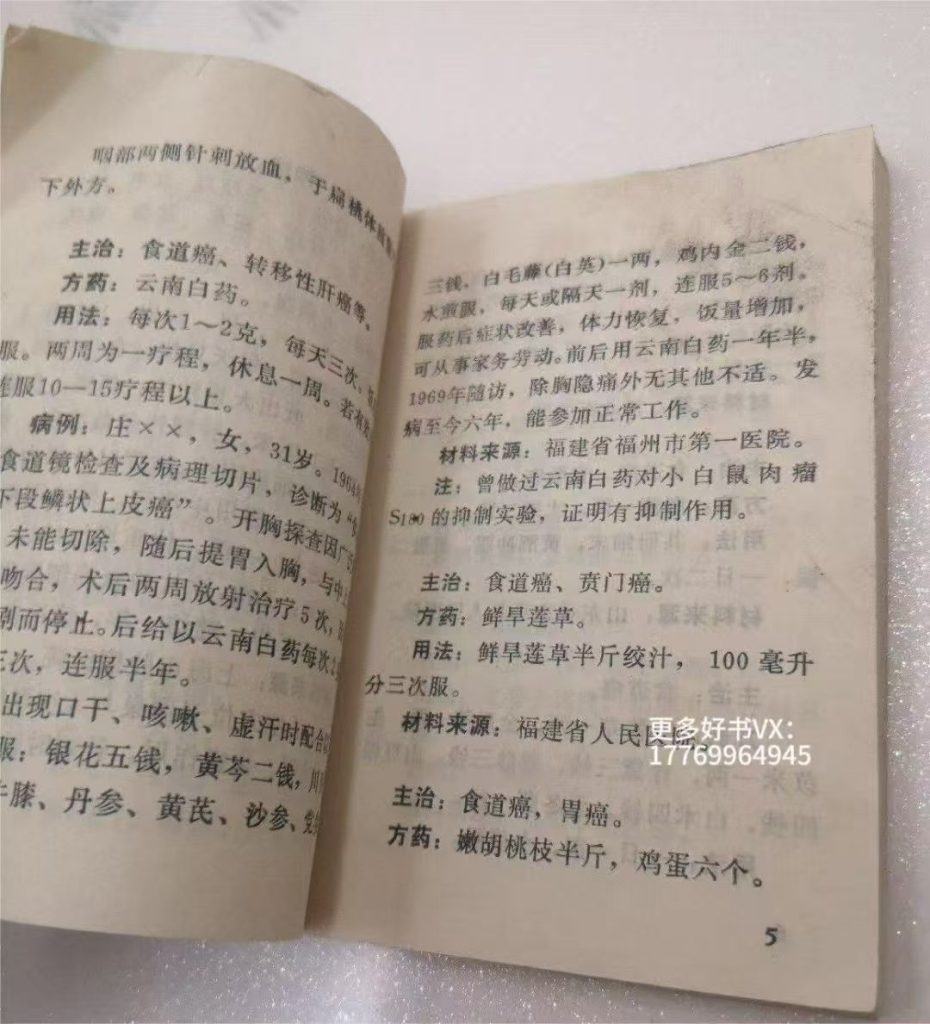 咽部两侧针刺放血，于扁桃体
下外方。
主治：食道癌、转移性肝癌等。
方药：云南白药。
用法：每次1～2克，每天三次，
服。两周为一疗程，休息一周。若有
连服10—15疗程以上。
病例：庄××，女，31岁。1964
食道镜检查及病理切片，诊断为“
下段鳞状上皮癌”。开胸探查因广
未能切除，随后提胃入胸，与中上
吻合，术后两周放射治疗5次，
剧而停止。后给以云南白药每次
三次，连服半年。
出现口干、咳嗽、虚汗时配合
服：银花五钱，黄芩二钱，川
牛膝、丹参、黄芪、沙参、党
三钱，白毛藤（白英）一两，鸡内金二钱，
水煎服，每天或隔天一剂，连服5～6剂。
服药后症状改善，体力恢复，饭量增加，
可从事家务劳动。前后用云南白药一年半，
1969年随访，除胸隐痛外无其他不适。发
病至今六年，能参加正常工作。
材料来源：福建省福州市第一医院。
注：曾做过云南白药对小白鼠肉瘤
S180的抑制实验，证明有抑制作用。
主治：食道癌、贲门癌。
方药：鲜旱莲草。
用法：鲜旱莲草半斤绞汁，100毫升
分三次服。
材料来源：福建省人民医院。
主治：食道癌，胃癌。
方药：嫩胡桃枝半斤，鸡蛋六个。
5
更多好书VX：
17769964945